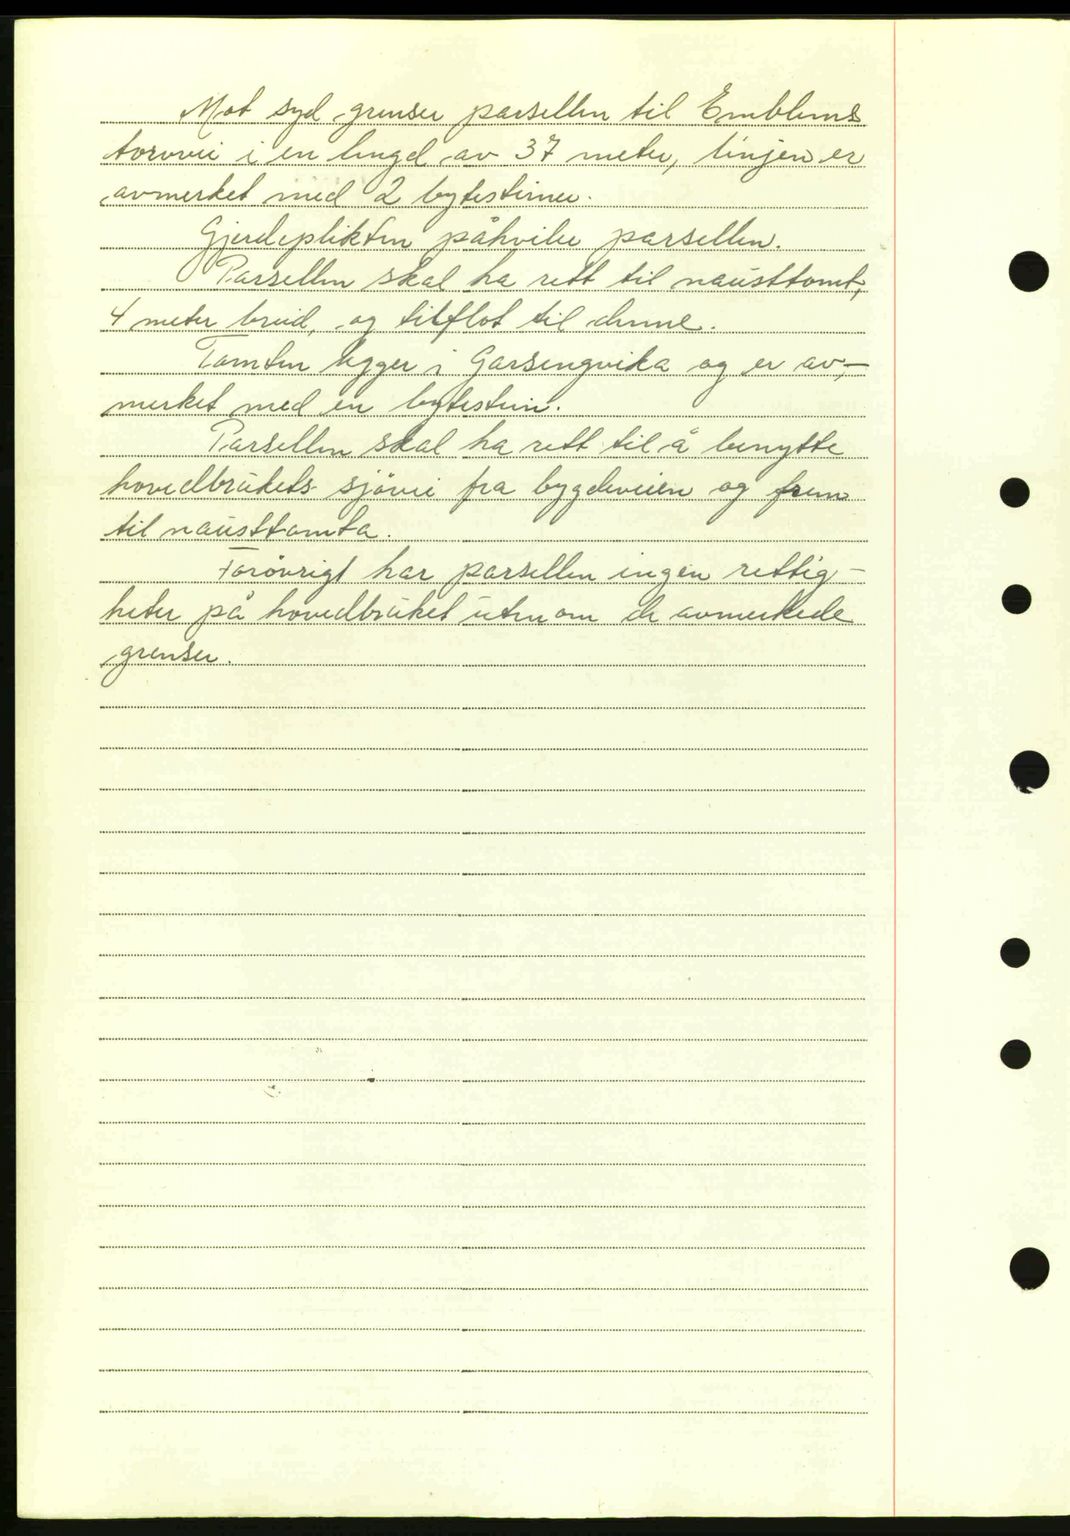 Mot syd grenser parsellen til Emblems
torvvei i en lengd av 37 meter, linjen er
avmerket med 2 bytesteiner.
Gjerdeplikten påhviler parsellen.
Parsellen skal ha rett til nausttomt,
4 meter breid, og tilflot til denne.
Tomten ligger i Garsengvika og er av-
merket med en bytestein.
Parsellen skal ha rett til å benytte
hovedbrukets sjövei fra bygdeveien og frem
til nausttomta.
Forövrigt har parsellen ingen rettig-
heter på hovedbruket utenom de avmerkede
grenser.